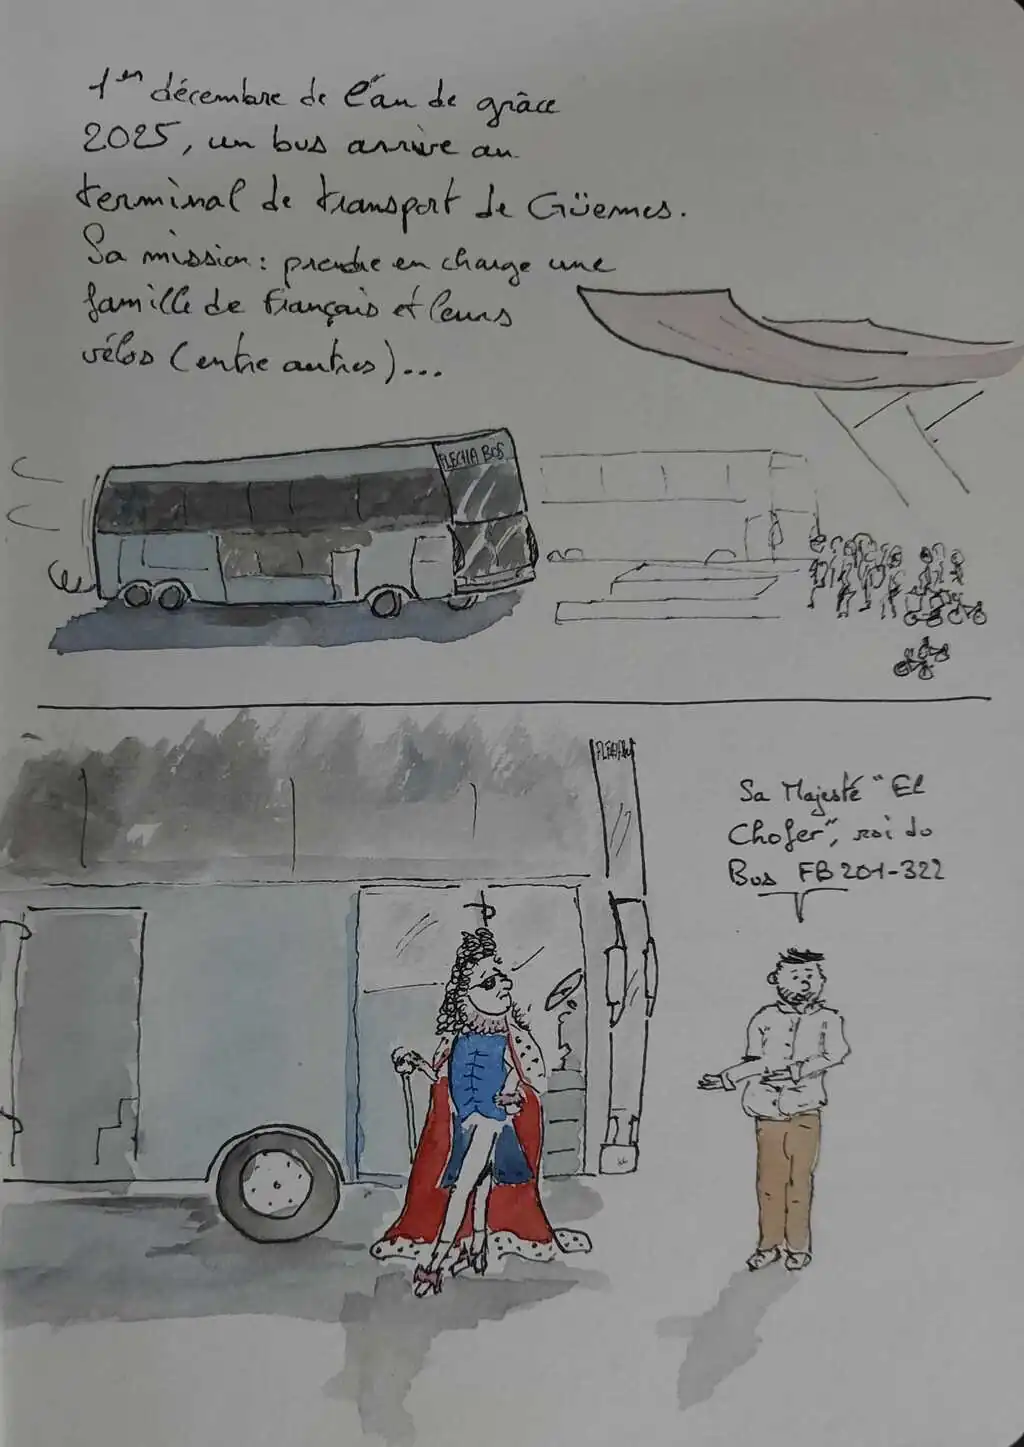 1er décembre de l'an de grâce
2025, un bus arrive au
terminal de transport de Güemes.
Sa mission : prendre en charge une
famille de Français et leurs
vélos (entre autres)...
FLECHA BUS
Sa Majesté "El
Chofer", roi du
Bus FB 201-322